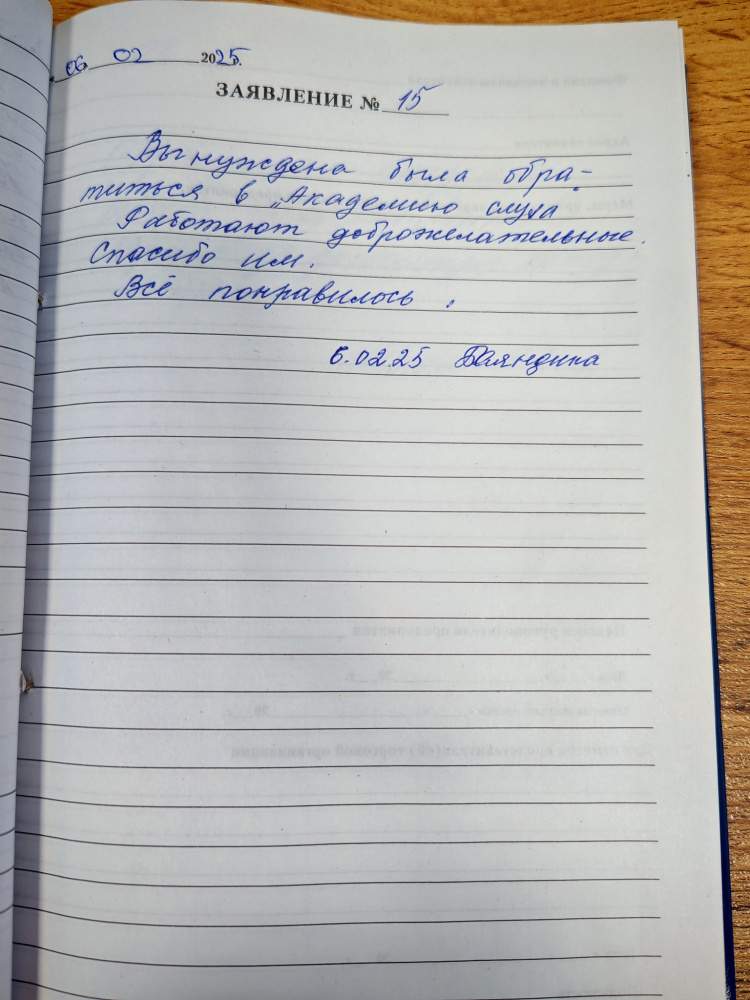 06. 02 2025.
ЗАЯВЛЕНИЕ № 15
Вынуждена была обра-
титься в „Академию слуха
Работают доброжелательные.
Спасибо им.
Всё понравилось.
6.02.25 Баяндина